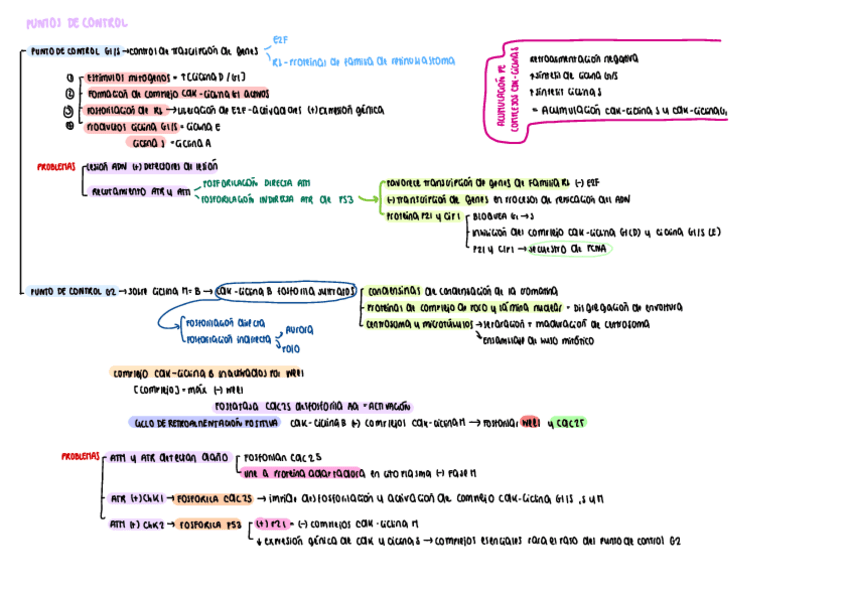 PUNTOS DE CONTROL
PUNTO DE CONTROL G1/S → control de trascripción de genes
E2F
Rb - Proteínas de familia de retinoblastoma
① Estímulos mitógenos = ↑ [ciclina D / G1]
② Formación de complejo Cdk-ciclina G1 activos
③ Fosforilación de Rb → liberación de E2F-activadores (+) expresión génica
④ Productos ciclina G1/S = ciclina E
ciclina S = ciclina A
ACUMULACIÓN DE COMPLEJOS CDK-CICLINAS
retroalimentación negativa
↑ síntesis de ciclina G1/S
↑ síntesis ciclina S
= Acumulación Cdk-ciclina S y Cdk-ciclina G1
PROBLEMAS
Lesión ADN (+) detectores de lesión
Reclutamiento ATR y ATM
FOSFORILACIÓN DIRECTA ATM
FOSFORILACIÓN INDIRECTA ATR de P53
Favorece transcripción de genes de familia Rb (-) E2F
(-) Transcripción de genes en procesos de replicación del ADN
Proteína P21 y CIP1
BLOQUEA G1 → S
Inhibición del complejo Cdk-ciclina G1(D) y ciclina G1/S (E)
P21 y CIP1 → secuestro de PCNA
PUNTO DE CONTROL G2 → sobre ciclina M = B → Cdk-ciclina B fosforila sustratos
condensinas de condensación de la cromatina
Proteínas de complejo de poro y lámina nuclear = Disgregación de envoltura
Centrosoma y microtúbulos → separación + maduración de centrosoma
Ensamblaje de huso mitótico
Fosforilación directa
Fosforilación indirecta
Aurora
Polo
Complejo Cdk-ciclina B inactivados por Wee1
[complejo] = máx (-) Wee1
Fosfatasa Cdc25 desfosforila = ACTIVACIÓN
CICLO DE RETROALIMENTACIÓN POSITIVA Cdk-ciclina B (+) complejos Cdk-ciclina M → fosforila: Wee1 y Cdc25
PROBLEMAS
ATM y ATR detectan daño
Fosforilan Cdc25
Une a proteína adaptadora en citoplasma (-) Fase M
ATR (+) Chk1 → FOSFORILA Cdc25 → impide desfosforilación y activación de complejo Cdk-ciclina G1/S, S y M
ATM (+) Chk2 → FOSFORILA P53
(+) P21 = (-) complejos Cdk-ciclina M
↓ expresión génica de Cdk y ciclinas → complejos esenciales para el paso del punto de control G2